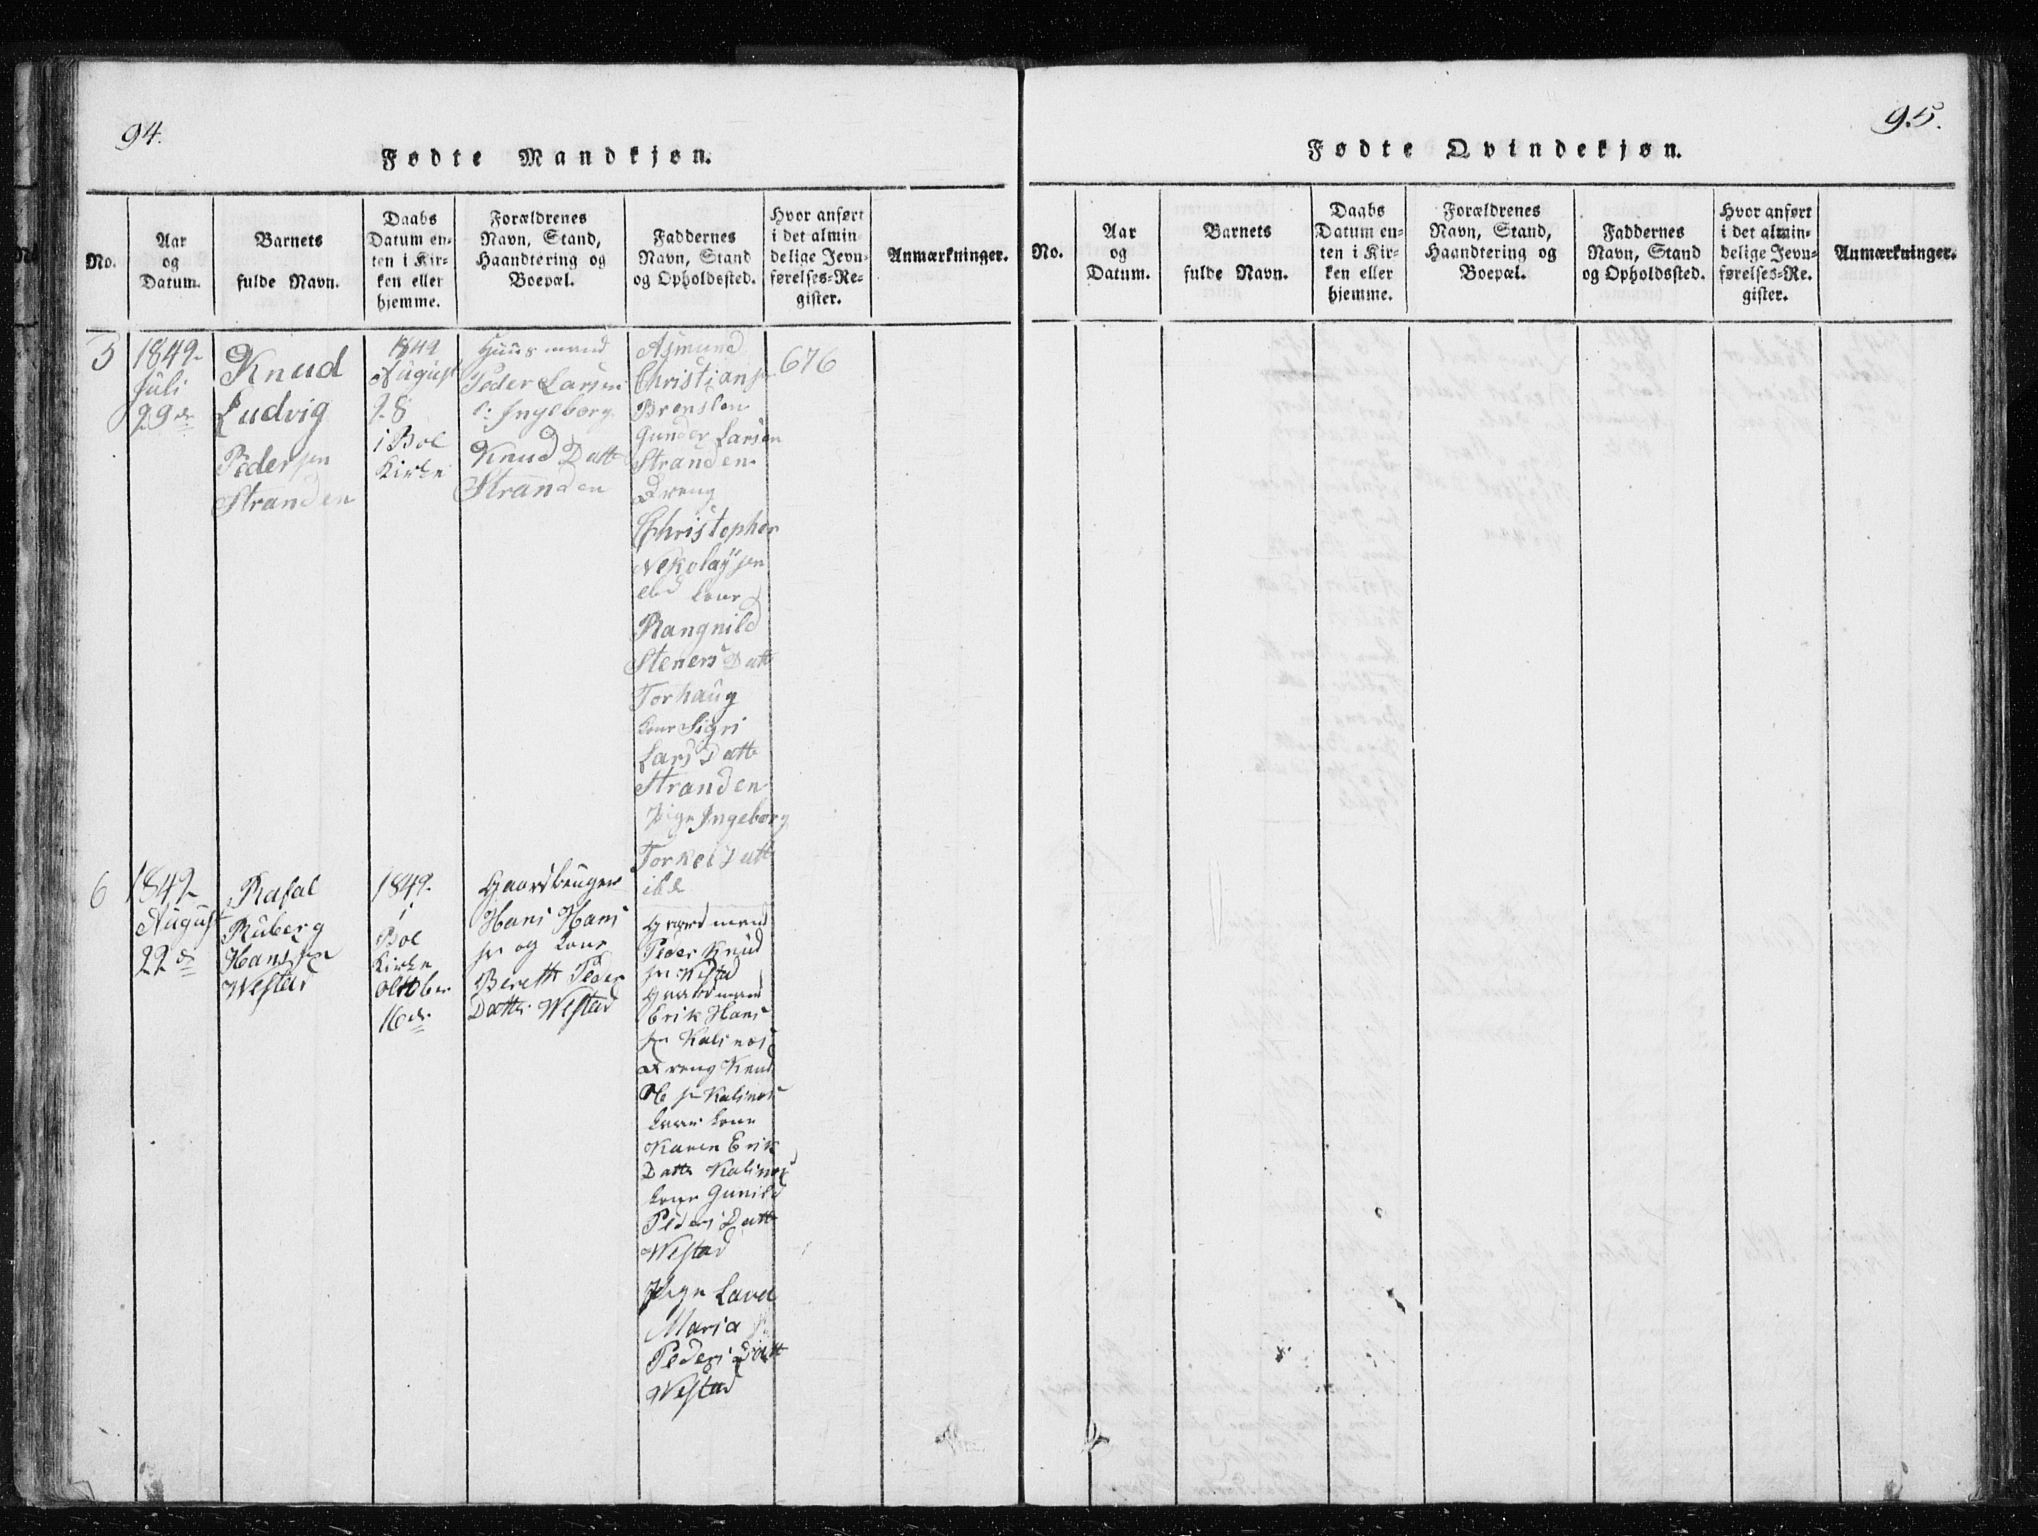 94.
Fødte Mandkjøn.
No.
Aar
og
Datum.
Barnets
fulde Navn.
Daabs
Datum en-
ten i Kir-
ken eller
hjemme.
Forældrenes
Navn, Stand,
Haandtering og
Boepæl.
Faddernes
Navn, Stand
og Opholdssted.
Hvor anført
i det almin-
delige Jevn-
førelses-Re-
gister.
Anmærkninger.
5
1849
Juli
29de
Knud
Ludvig
Pedersen
Stranden
1849
August
28
i Bol
Kirke
Huusmand
Peder Larsen
Ingeborg
Knud Datt
Stranden
Asmund
Christiansen
Brenslen
Gunder Larsen
Stranden
Dreng
Christopher
Nekolaysen
Kone
Rangnild
Steners Datt
Torhaug
Kone Sigri
Lars Datt
Stranden
Pige Ingeborg
Torkels Datt
676
6
1849
August
22de
Rafal
Ruberg
Hansen
Westad
1849
i
Bol
Kirke
oktober
16de
Gaardbruger
Hans Hans
sen og Kone
Bereth Peder
Datter Westad
Gaardmand
Peder Knud
sen Westad
Gaardmand
Erik Hans
sen Kalsnes
Dreng Knud
Ole sen Kalsnes
Kone
Karen Erik
Datter Kalsnes
Kone Gunild
Peders Datt
Westad
Pige
Maria
Peders Datt
Westad
95.
Fødte Qvindekjøn.
No.
Aar
og
Datum.
Barnets
fulde Navn.
Daabs
Datum en-
ten i Kir-
ken eller
hjemme.
Forældrenes
Navn, Stand,
Haandtering og
Boepæl.
Faddernes
Navn, Stand
og Opholdssted.
Hvor anført
i det almin-
delige Jevn-
førelses-Re-
gister.
Anmærkninger.